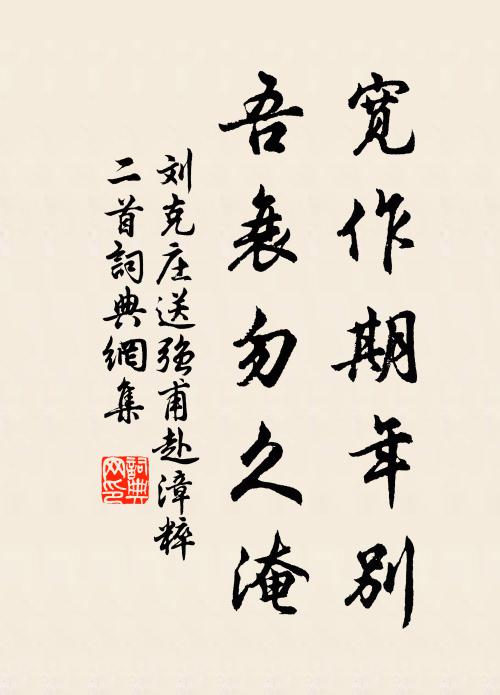 寬作期年别
吾衰勿久淹
刘克庄送强甫赴漳粹
二首詞典網集
詞典
网印